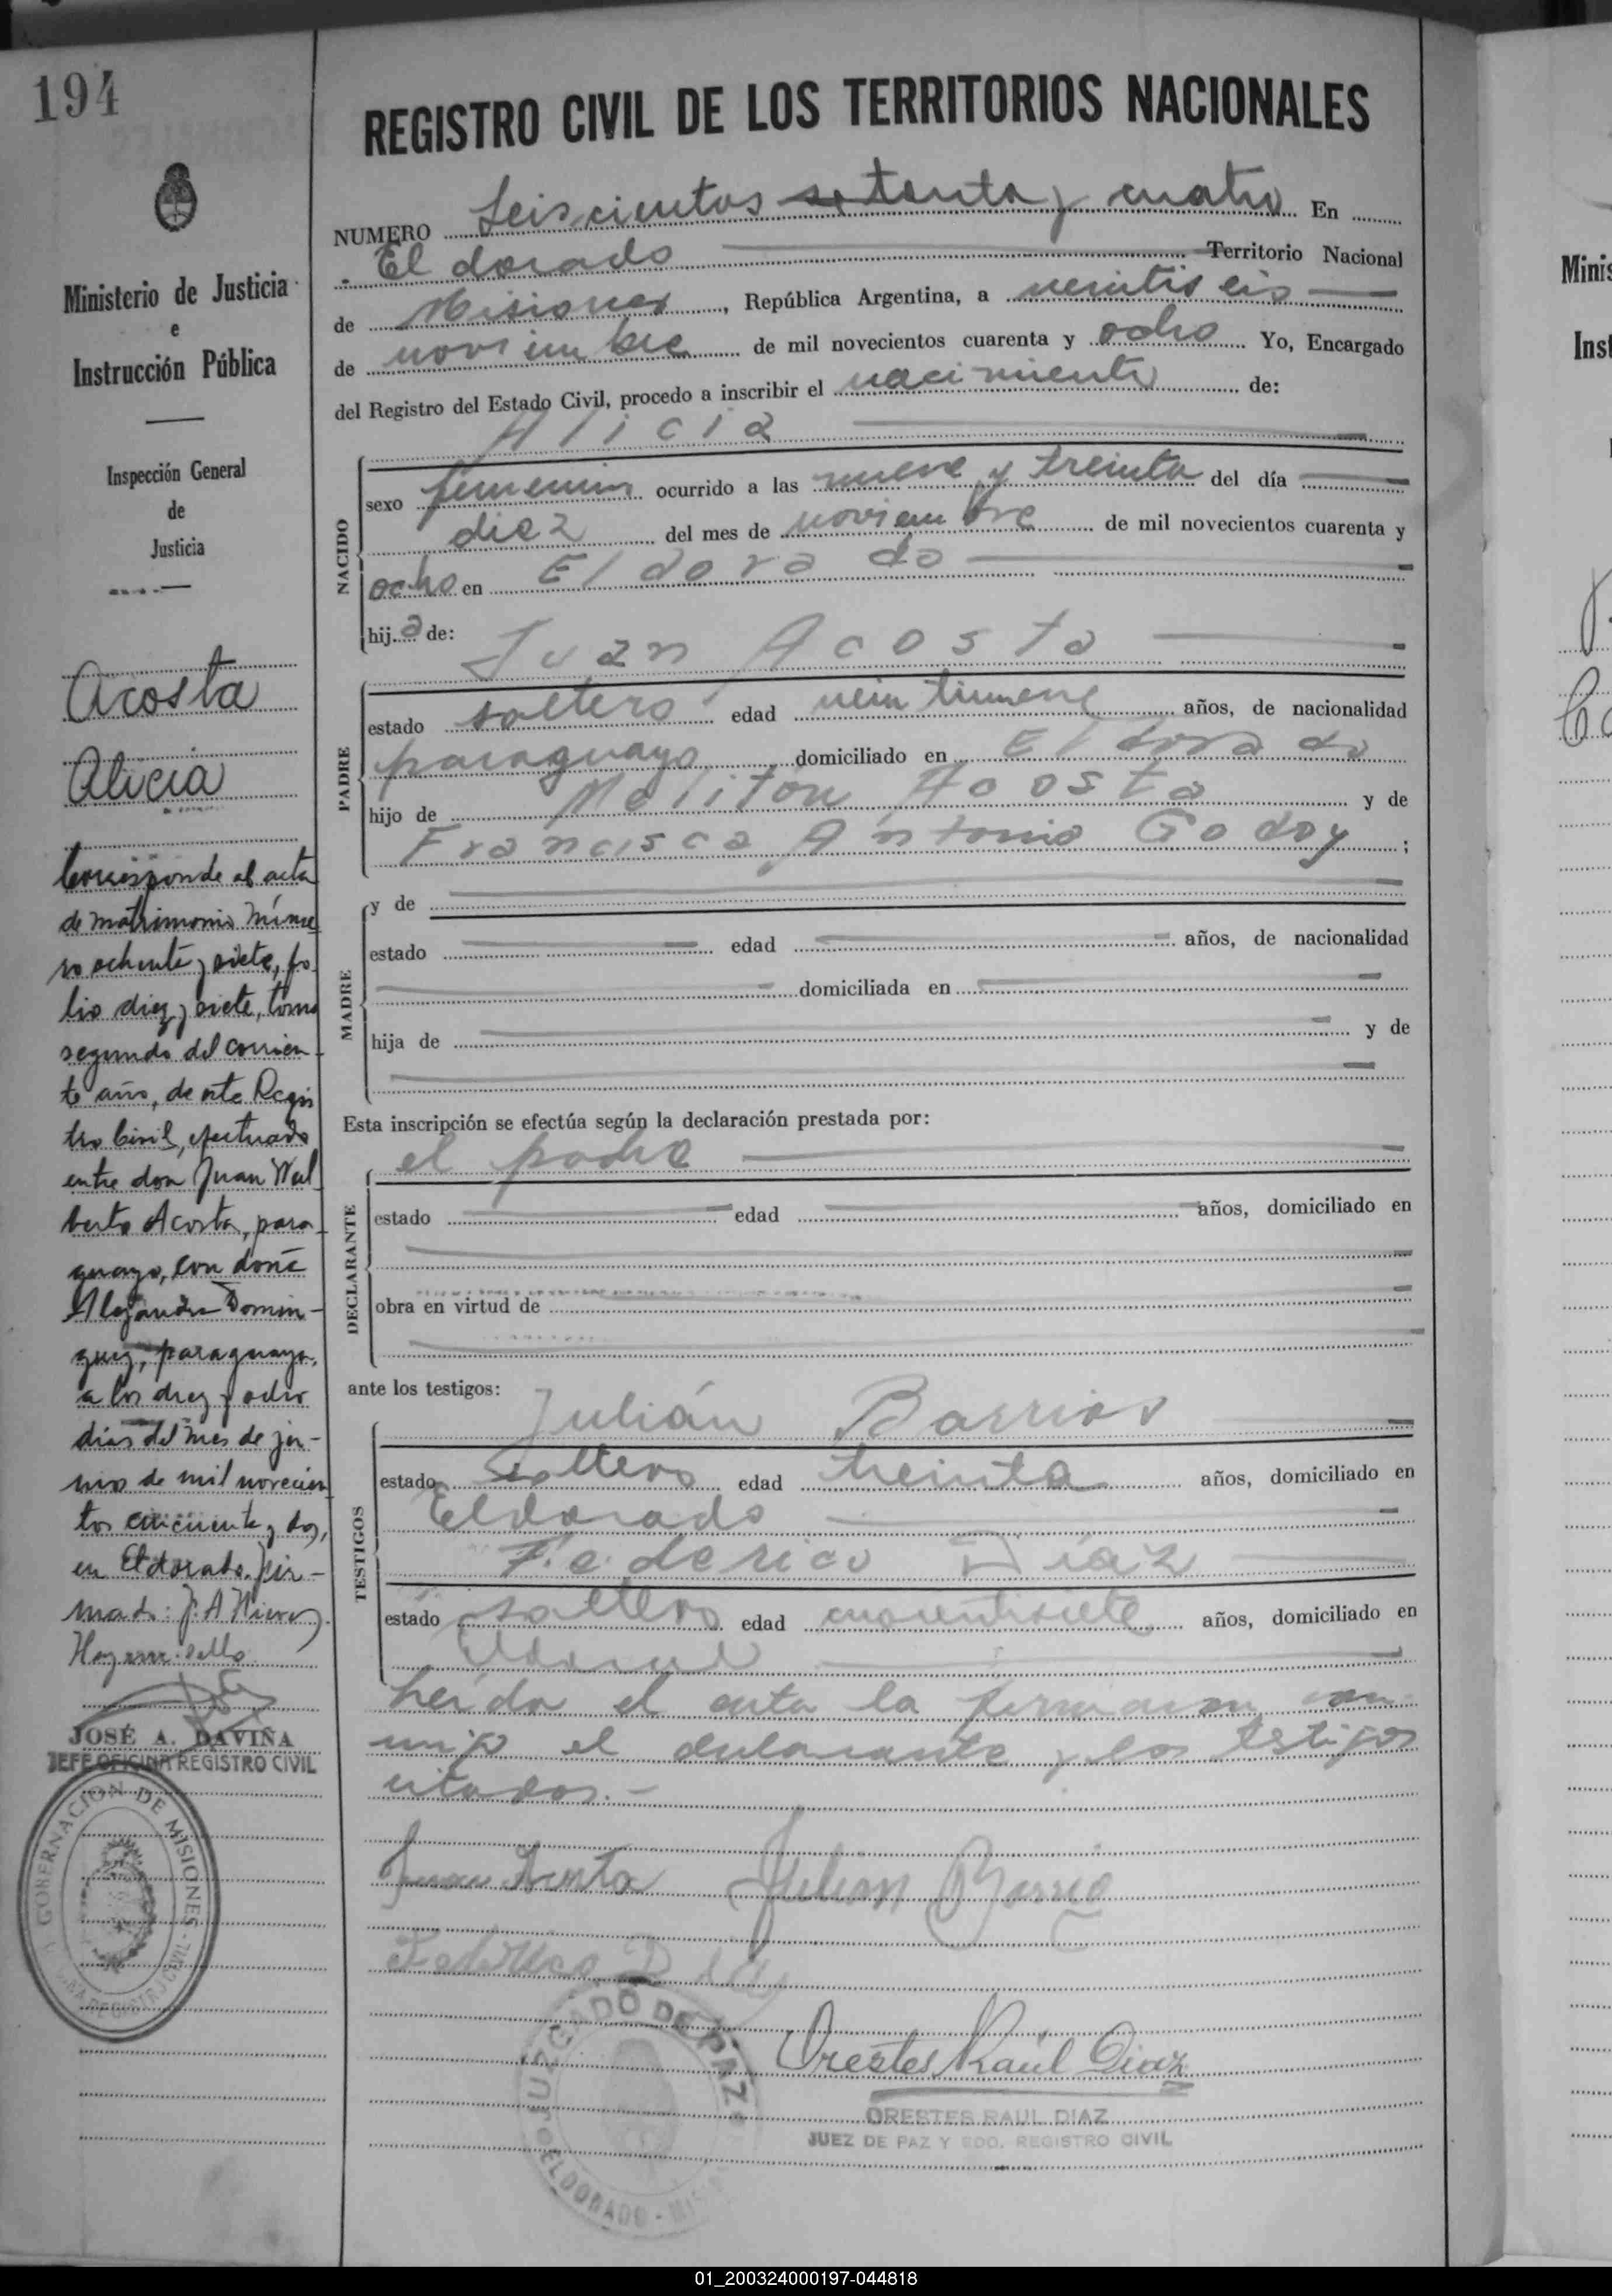 194
Ministerio de Justicia
e
Instrucción Pública
Inspección General
de
Justicia
Acosta
Alicia
Corresponde al acta
de matrimonio núme
ro ochenta y siete, fo
lio diez y siete, tomo
segundo del corrien-
te año, de este Regis
tro Civil, efectuado
entre don Juan Wal
berto Acosta, para-
guayo, con doña
Alejandra Domin-
guez, paraguaya,
a los diez y ocho
dias del mes de ju-
nio de mil novecien
tos cincuenta y dos,
en Eldorado. Fir-
mado: J. A.
Hay un sello
JOSÉ A. DAVIÑA
JEFE OFICINA REGISTRO CIVIL
GOBERNACION DE MISIONES
REGISTRO CIVIL DE LOS TERRITORIOS NACIONALES
NUMERO Seiscientos setenta y cuatro En
El dorado Territorio Nacional
de Misiones, República Argentina, a veintiseis
de noviembre de mil novecientos cuarenta y ocho Yo, Encargado
del Registro del Estado Civil, procedo a inscribir el nacimiento de:
Alicia
NACIDO
sexo femenino ocurrido a las nueve y treinta del día
diez del mes de noviembre de mil novecientos cuarenta y
ocho en Eldorado
hija de:
Juan Acosta
PADRE
estado soltero edad veintinueve años, de nacionalidad
paraguayo domiciliado en Eldorado
hijo de Melitón Acosta y de
Francisca Antonia Godoy ;
MADRE
y de
estado edad años, de nacionalidad
domiciliada en
hija de y de
Esta inscripción se efectúa según la declaración prestada por:
el padre
DECLARANTE
estado edad años, domiciliado en
obra en virtud de
ante los testigos:
Julián Barrios
TESTIGOS
estado soltero edad treinta años, domiciliado en
Eldorado
Federico Díaz
estado soltero edad cuarentisiete años, domiciliado en
Eldorado
Leída el acta la firmaron con-
migo el declarante y los testigos
citados.-
Juan Acosta Julian Barrio
Federico Diaz
JUZGADO DE PAZ
ELDORADO - MIS
Orestes Raúl Diaz
ORESTES RAUL DIAZ
JUEZ DE PAZ Y EDO. REGISTRO CIVIL
Minis
Inst
01_200324000197-044818